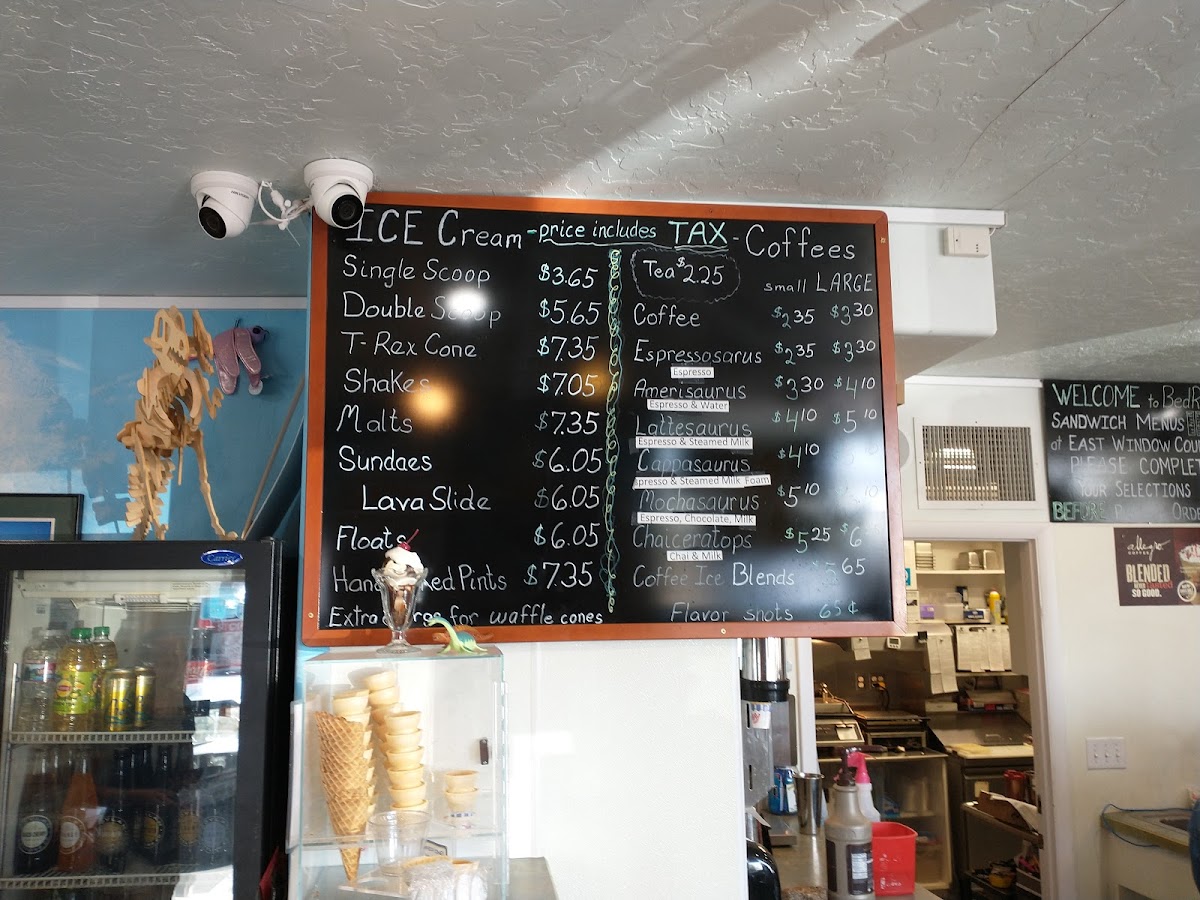 ICE Cream - price includes TAX - Coffees
Single Scoop $3.65
Double Scoop $5.65
T-Rex Cone $7.35
Shakes $7.05
Malts $7.35
Sundaes $6.05
Lava Slide $6.05
Floats $6.05
Pints $7.35
Extra for waffle cones
Tea $2.25
small LARGE
Coffee $2.35 $3.30
Espressosarus $2.35 $3.30
Espresso
Amerisaurus $3.30 $4.10
Espresso & Water
Lattesaurus $4.10 $5.10
Espresso & Steamed Milk
Cappasaurus $4.10
Espresso & Steamed Milk Foam
Mochasaurus $5.10
Espresso, Chocolate, Milk
Chaiceratops $5.25 $6
Chai & Milk
Coffee Ice Blends 65
Flavor shots 65¢
WELCOME to
SANDWICH MENUS
at EAST WINDOW
PLEASE
YOUR SELECTIONS
BEFORE
allegro
COFFEE
BLENDED
SO GOOD.
Carrier